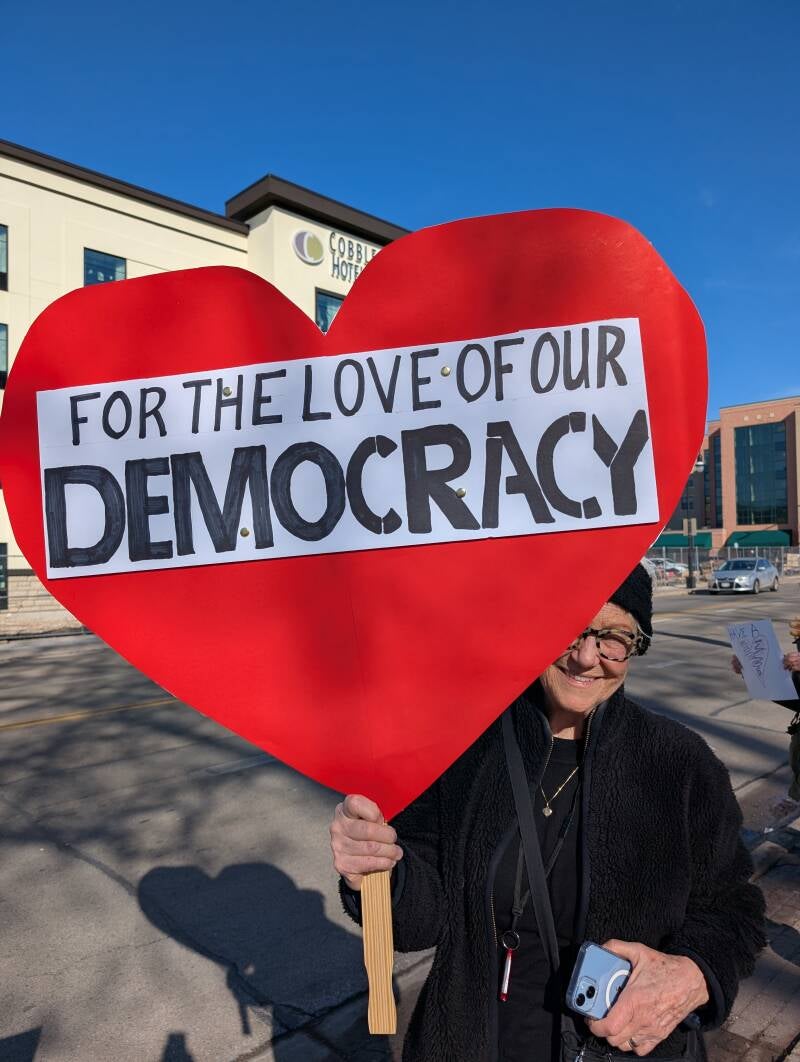 COBBLE
HOTE
FOR THE LOVE OF OUR
DEMOCRACY